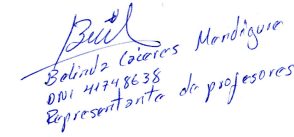 Belinda Cáceres Mandigure
DNI 41748638
Representante de profesores